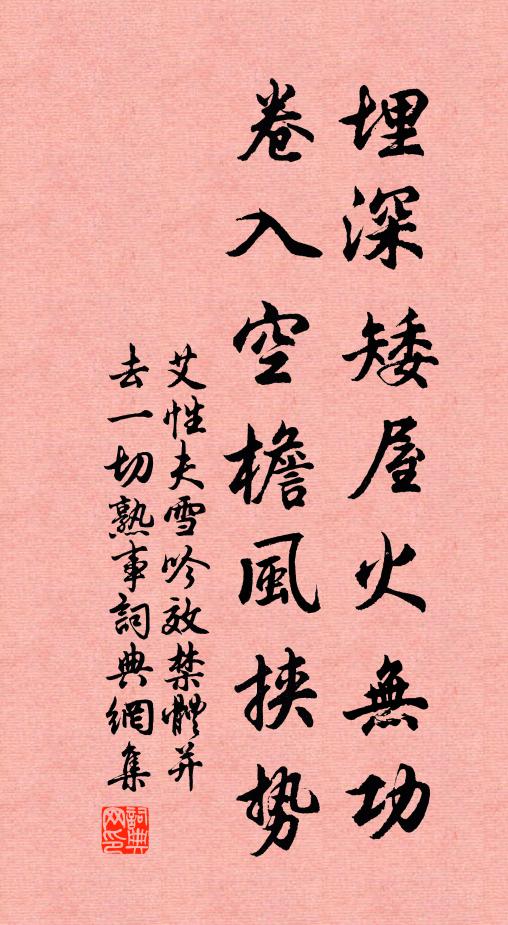 埋深矮屋火無功
卷入空檐風挾势
艾性夫雪吟效禁體并
去一切熟事詞典網集
詞典网印